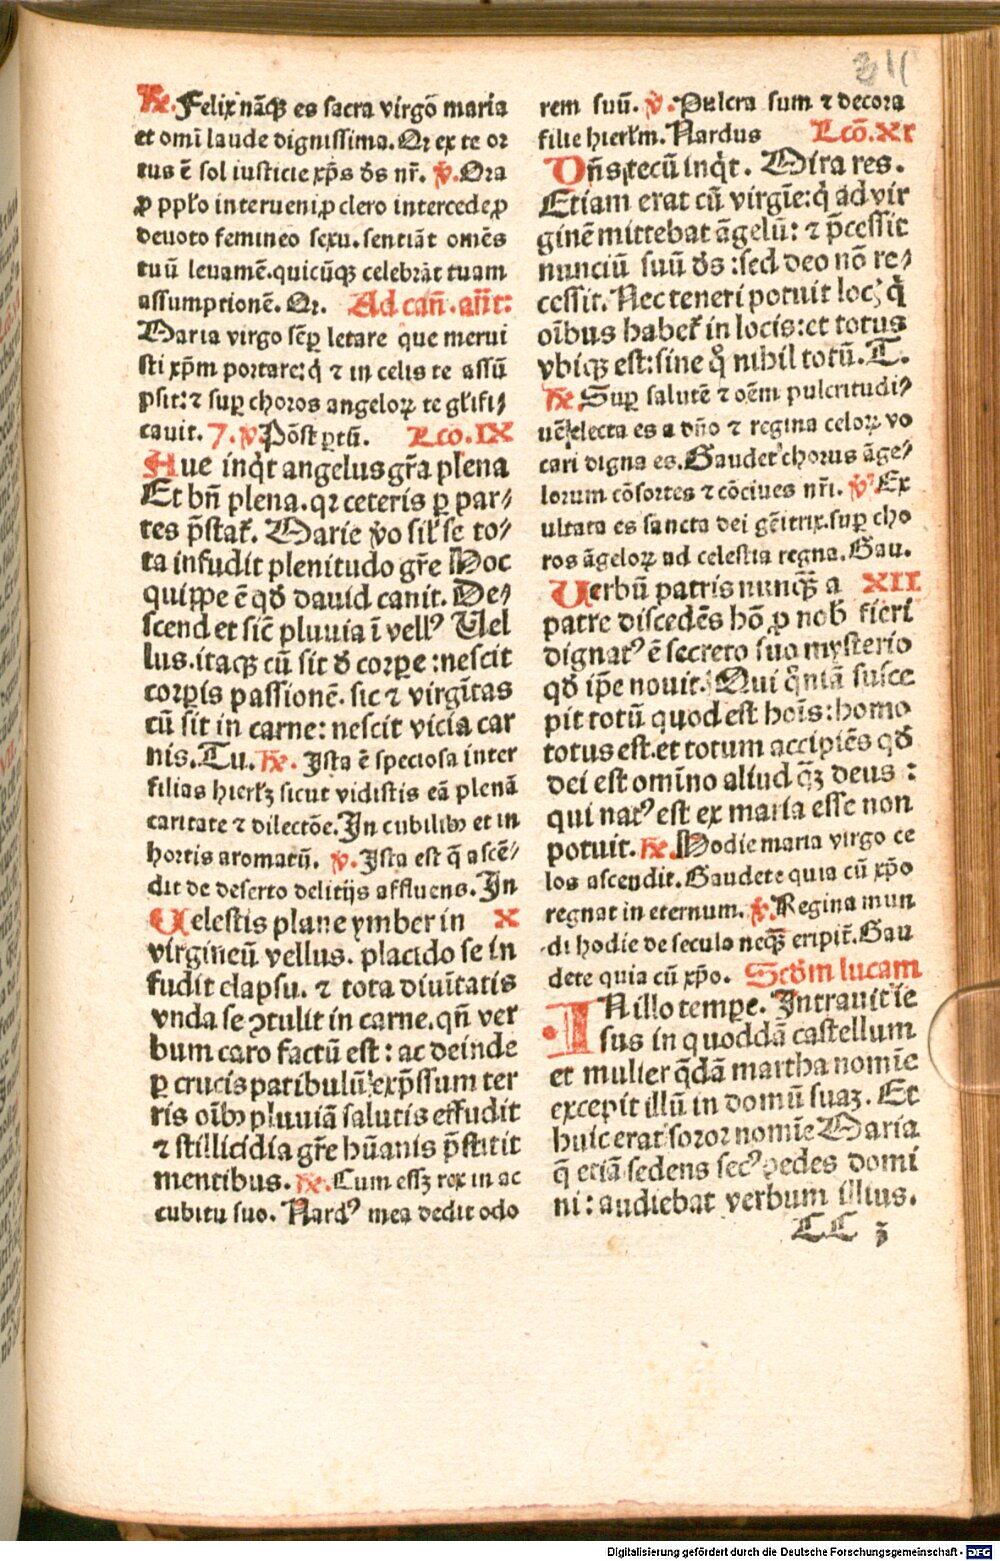 311
℟. Felix nāqꝫ es sacra virgō maria
et omī laude dignissima. Qꝛ ex te or
tus ē sol iusticie xp̄s ds̄ nr̄. ℣. Ora
ꝓ pplo interueni ꝓ clero intercede ꝓ
deuoto femineo sexu. sentiāt omēs
tuū leuamē. quicūqꝫ celebrāt tuam
assumptionē. Qꝛ. Ad cañ. añt:
Maria virgo sēꝑ letare que merui
sti xp̄m portare: q̇ ⁊ in celis te assū
psit: ⁊ suꝑ choros angeloꝝ te glifi⸗
cauit. 7. ℣. Pōst ꝑtū. Lco. IX
Aue inqt angelus gr̄a plena
Et bn̄ plena. qꝛ ceteris ꝑ par⸗
tes p̄stat̄. Marie v̊o sil̄ se to⸗
ta infudit plenitudo gr̄e Hoc
quippe ē qd̄ dauid canit. De⸗
scendet sic̄ pluuia ī vellꝰ Uel
lus. itaqꝫ cū sit d̄ corpe: nescit
corpis passionē. sic ⁊ virgītas
cū sit in carne: nescit vicia car
nis. Tu. ℟. Ista ē speciosa inter
filias hierlꝫ sicut vidistis eā plenā
caritate ⁊ dilectōe. In cubilibꝰ et in
hortis aromatū. ℣. Ista est q̄ ascē⸗
dit de deserto delitijs affluens. In
Celestis plane ymber in X
virgineū vellus. placido se in
fudit elapsu. ⁊ tota diuītatis
vnda se ꝯtulit in carne. qn̄ ver
bum caro factū est: ac deinde
ꝑ crucis patibulū exp̄ssum ter
ris oībꝰ pluuiā salutis effudit
⁊ stillicidia gr̄e hūanis p̄stitit
mentibus. ℟. Cum essꝫ rex in ac
cubitu suo. Nardꝰ mea dedit odo
rem suū. ℣. Pulcra sum ⁊ decora
filie hierl̄m. Nardus Lcō. XI
Dn̄s tecū inqt. Mira res.
Etiam erat cū virgīe: q̇ ad vir
ginē mittebat āgelū: ⁊ p̄cessit
nunciū suū ds̄: sed deo nō re⸗
cessit. Nec teneri potuit locꝫ q̇
oībus habet̄ in locis: et totus
vbiqꝫ est: sine q̊ nihil totū. T.
℟. Suꝑ salutē ⁊ oēm pulcritudi⸗
nē electa es a dn̄o ⁊ regina celoꝝ vo
cari digna es. Gaudet chorus āge⸗
lorum cōsortes ⁊ cōciues nr̄i. ℣. Ex
ultata es sancta dei gēitrix. suꝑ cho
ros āgeloꝝ ad celestia regna. Gau.
Uerbū patris nunqꝫ a XII
patre discedēs hō ꝓ nob̄ fieri
dignatꝰ ē secreto suo mysterio
qd̄ ip̄e nouit. Qui qm̄iā susce
pit totū quod est hoīs: homo
totus est. et totum accipiēs qd̄
dei est omīno aliud q̄ꝫ deus:
qui natꝰ est ex maria esse non
potuit. ℟. Hodie maria virgo ce
los ascendit. Gaudete quia cū xp̄o
regnat in eternum. ℣. Regina mun
di hodie de seculo neqꝫ eripit̄. Gau
dete quia cū xp̄o. Scd̄m lucam
IN illo tempe. Intrauit ie
sus in quoddā castellum
et mulier q̇dā martha nomīe
excepit illū in domū suaꝫ. Et
huic erat soror nomīe Maria
q̄ etiā sedens secꝰ pedes domi
ni: audiebat verbum illius.
CC 3
Digitalisierung gefördert durch die Deutsche Forschungsgemeinschaft - DFG